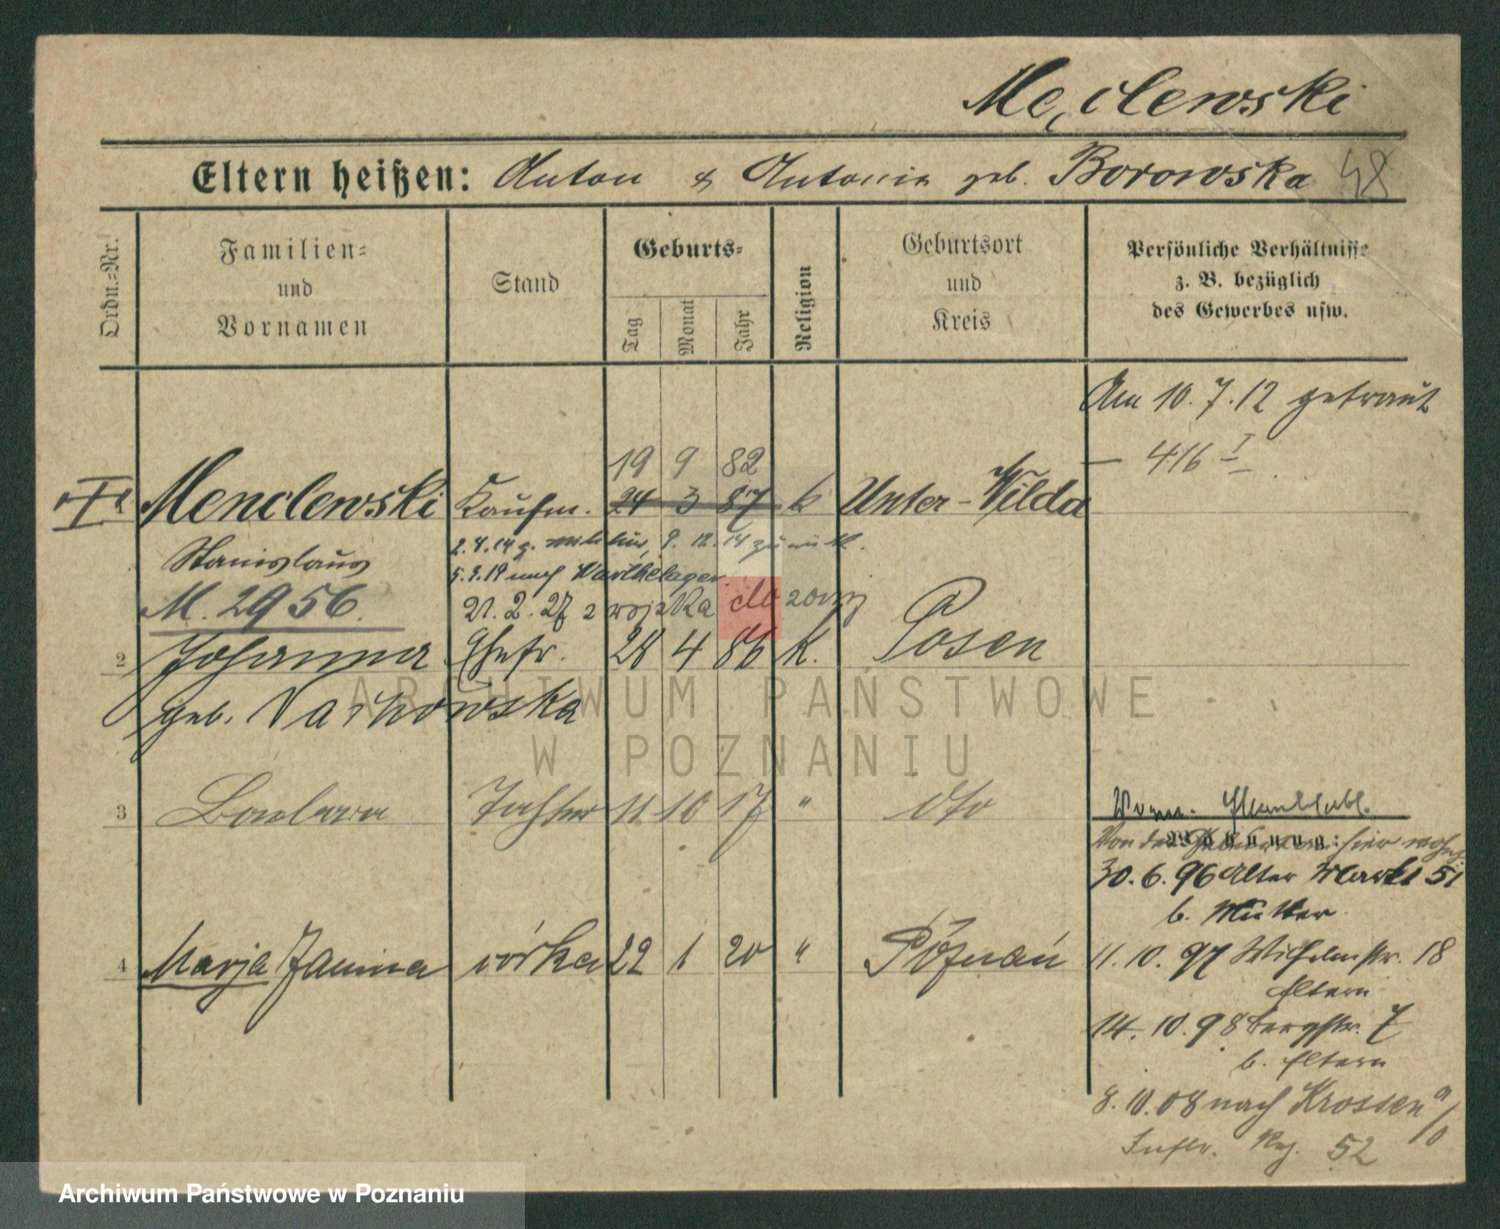 Męclewski
Eltern heißen: Anton & Antonie geb. Borowska 48
Ordn.-Nr.
Familien- und Vornamen
Stand
Geburts-
Tag Monat Jahr
Religion
Geburtsort und Kreis
Persönliche Verhältnisse
z. B. bezüglich
des Gewerbes usw.
Am 10.7.12 getraut
— 416 I
19 9 82
Menclewski Kaufm. 24 3 87 k Unter-Wilda
Stanislaus
2.8.14 z. Militär, 9.12.14 zurück.
5.3.19 nach Warthelager
M. 2956.
21.2.27 z wojska do
2 Johanna Ehefr. 28 4 86 k. Posen
geb.
ARCHIWUM PAŃSTWOWE
W POZNANIU
3 Barbara Tochter 11 10 17 " dto
Wohnung:
Von der hier
30.6.96 Alter Markt 51
b. Mutter
4 Marja Janina córka 22 1 20 " Poznań
11.10.97 Wilhelmstr. 18
Eltern
14.10.98 Bergstr. 7
b. Eltern
8.10.08 nach Krossen a/O
Inftr. Rg. 52
Archiwum Państwowe w Poznaniu